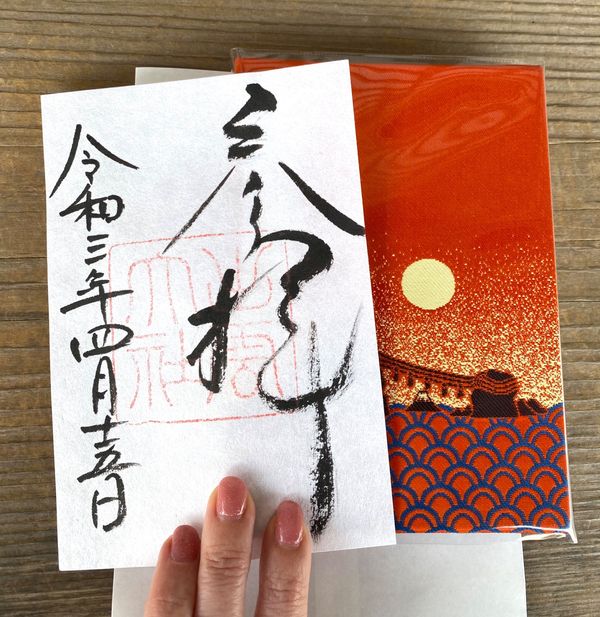 参拝
大社
令和三年四月十五日